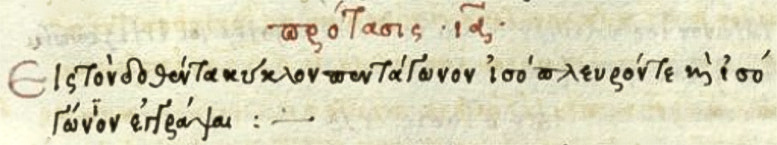 πρότασις · ια ·
Εἰς τὸν δοθέντα κύκλον πεντάγωνον ἰσόπλευρόν τε κ̀ ἰσο
γώνιον ἐγγράψαι : —